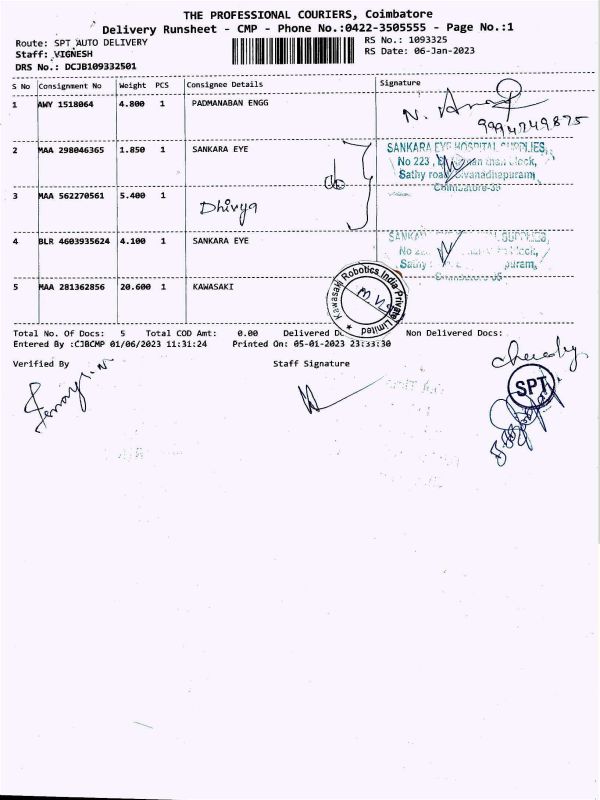 THE PROFESSIONAL COURIERS, Coimbatore
Delivery Runsheet - CMP - Phone No.:0422-3505555 - Page No.:1
Route: SPT AUTO DELIVERY
Staff: VIGNESH
DRS No.: DCJB109332501
RS No.: 1093325
RS Date: 06-Jan-2023
S No Consignment No Weight PCS Consignee Details Signature
1 AWY 1518064 4.800 1 PADMANABAN ENGG
9994749875
2 MAA 298046365 1.850 1 SANKARA EYE
SANKARA EYE HOSPITAL SUPPLIES,
No 223,
Sathy road Sivanadhapuram,
Coimbatore-35
3 MAA 562270561 5.400 1
Dhivya
4 BLR 4603935624 4.100 1 SANKARA EYE
5 MAA 281362856 20.600 1 KAWASAKI
Kawasaki Robotics India Private Limited
Total No. Of Docs: 5 Total COD Amt: 0.00 Delivered Do Non Delivered Docs:
Entered By :CJBCMP 01/06/2023 11:31:24 Printed On: 05-01-2023 23:33:30
Verified By Staff Signature
SPT